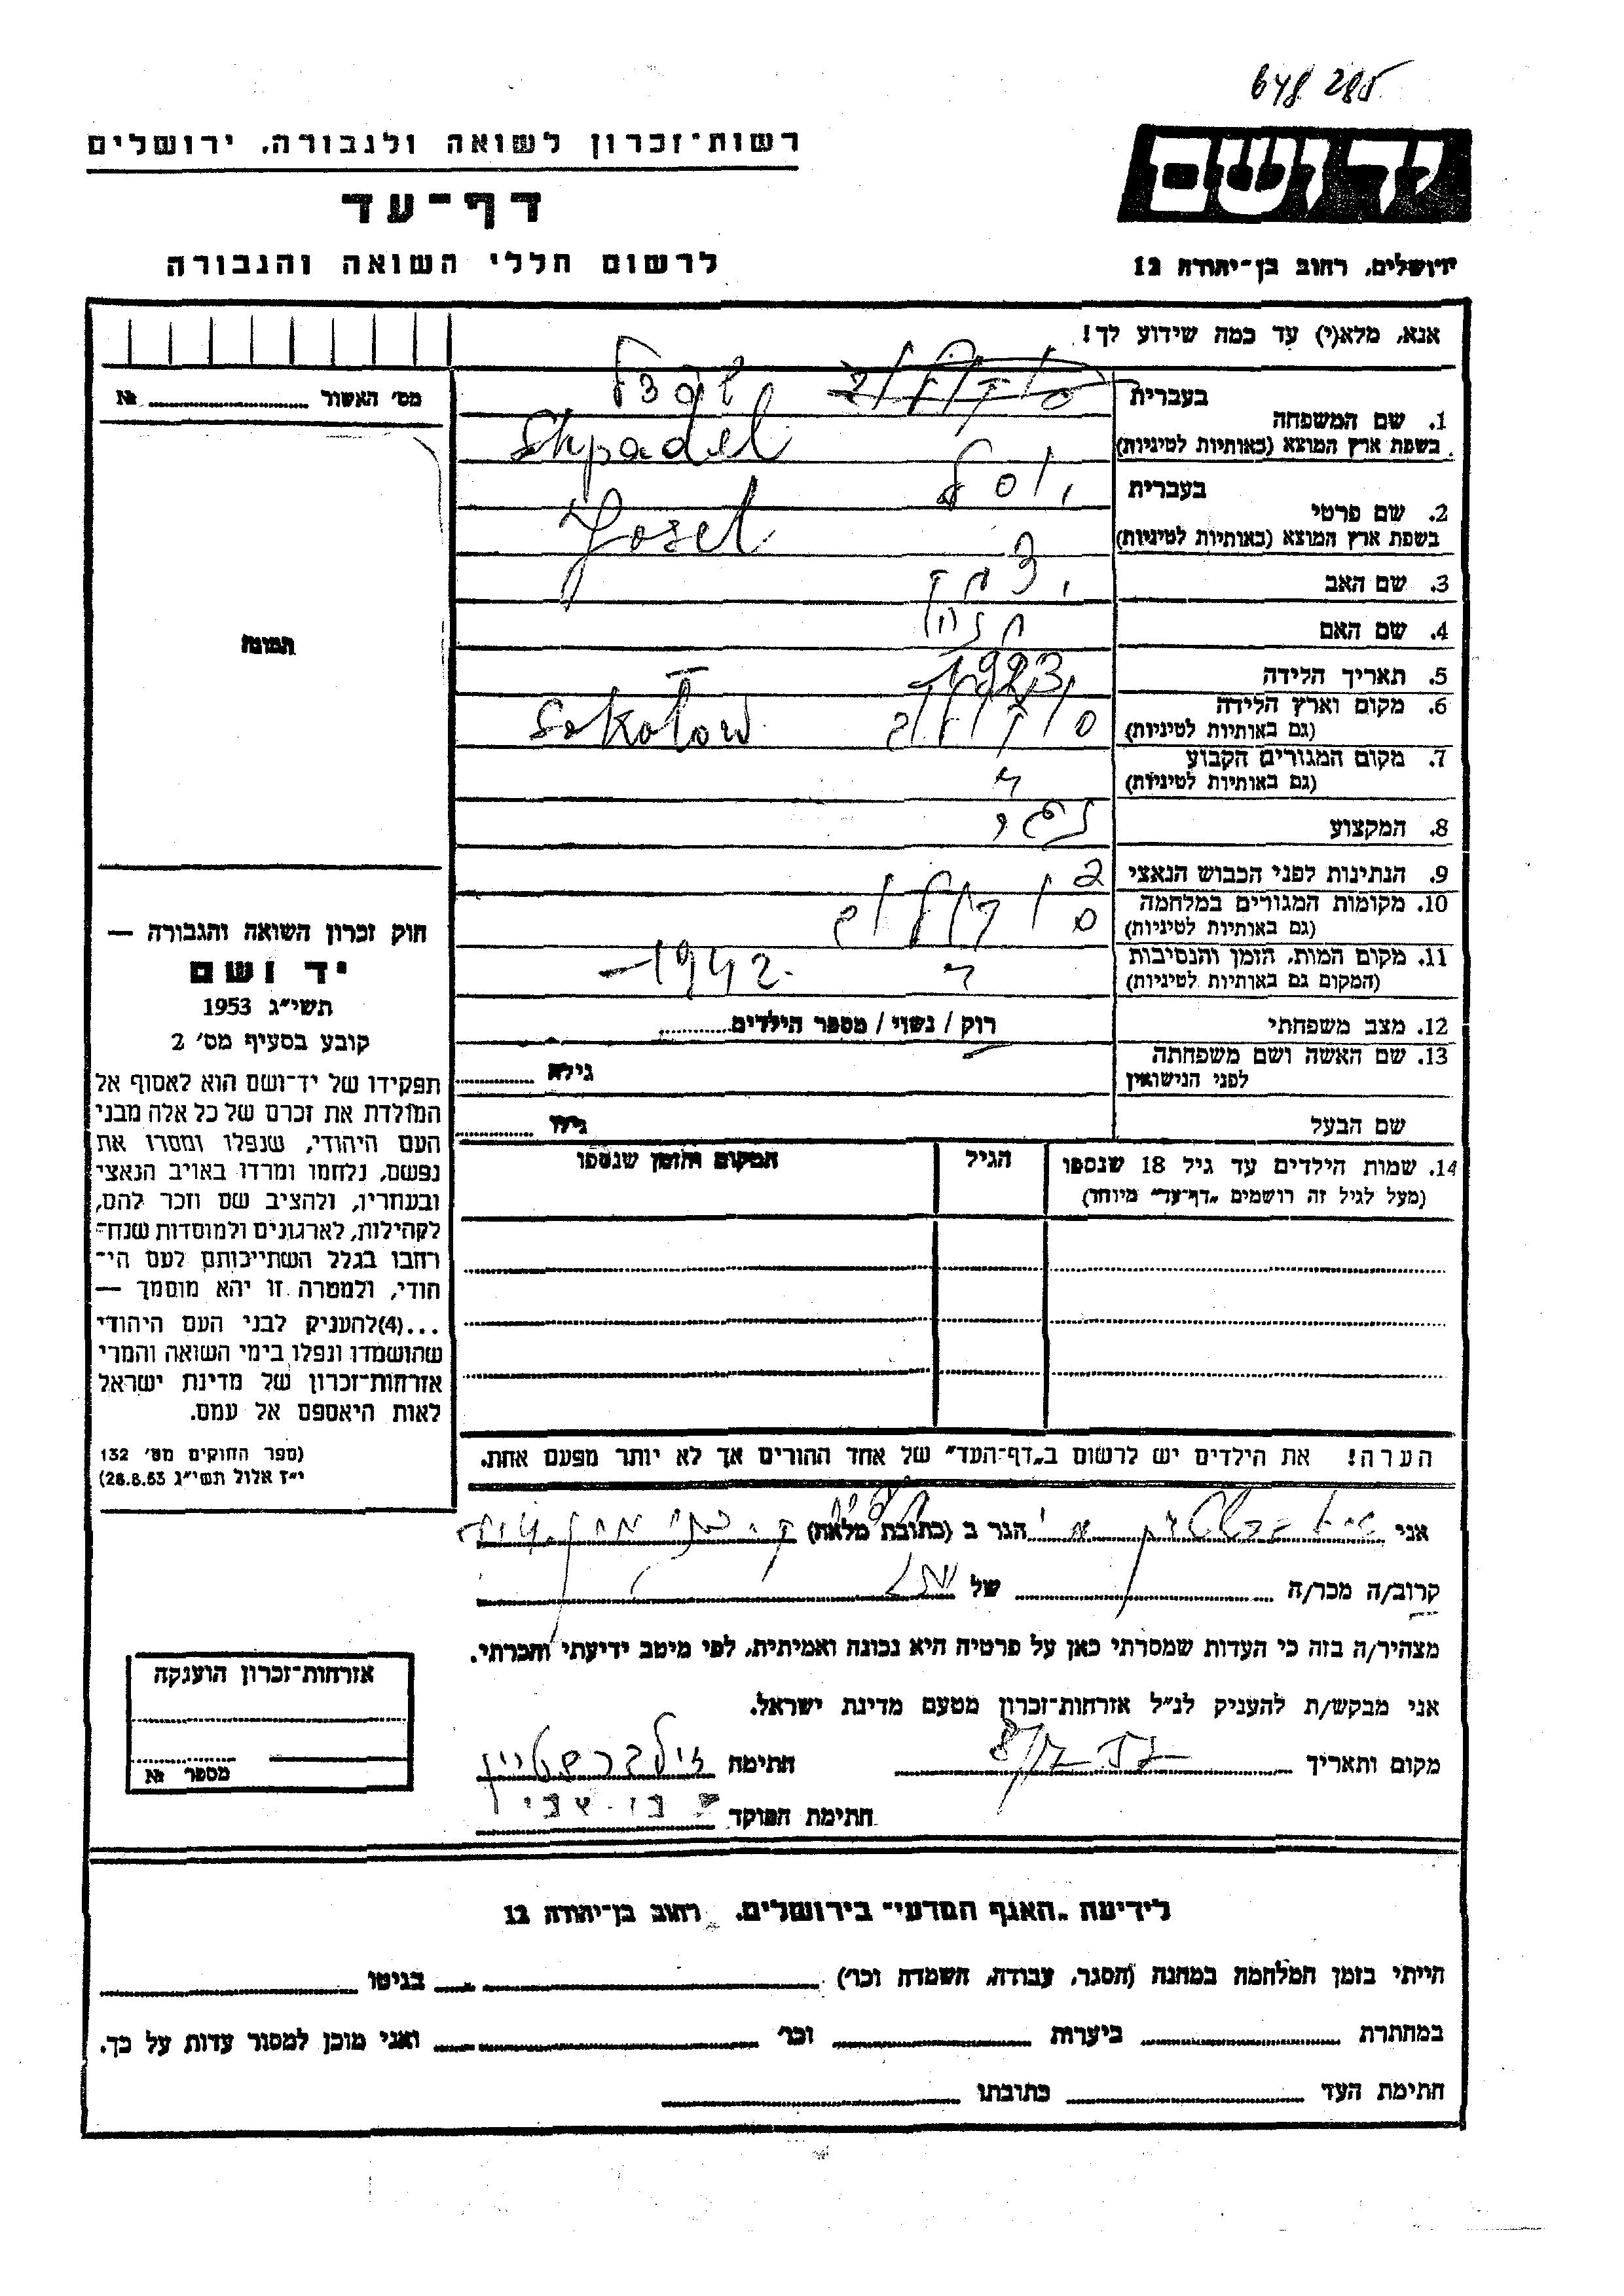 648 285
יד ושם
רשות־זכרון לשואה ולגבורה, ירושלים
דף־עד
לרשום חללי השואה והגבורה
ירושלים, רחוב בן־יהודה 12
אנא, מלא(י) עד כמה שידוע לך!
מס׳ האשור № 
1. שם המשפחה בעברית
שפדל
בשפת ארץ המוצא (באותיות לטיניות) Shpadel
2. שם פרטי בעברית יוסל
בשפת ארץ המוצא (באותיות לטיניות) Josel
3. שם האב
4. שם האם חנה
5. תאריך הלידה 1923
6. מקום וארץ הלידה (גם באותיות לטיניות) סוקולוב Sokołow
7. מקום המגורים הקבוע (גם באותיות לטיניות) "
8. המקצוע
9. הנתינות לפני הכבוש הנאצי פ
10. מקומות המגורים במלחמה (גם באותיות לטיניות) סוקולוב
11. מקום המות, הזמן והנסיבות (המקום גם באותיות לטיניות) " 1942
12. מצב משפחתי רוק / נשוי / מספר הילדים
13. שם האשה ושם משפחתה לפני הנישואין גילה
שם הבעל גילו
14. שמות הילדים עד גיל 18 שנספו הגיל המקום והזמן שנספו
(מעל לגיל זה רושמים „דף־עד״ מיוחד)
הערה! את הילדים יש לרשום ב„דף־העד״ של אחד ההורים אך לא יותר מפעם אחת.
תמונה
חוק זכרון השואה והגבורה —
יד ושם
תשי״ג 1953
קובע בסעיף מס׳ 2
תפקידו של יד־ושם הוא לאסוף אל
המולדת את זכרם של כל אלה מבני
העם היהודי, שנפלו ומסרו את
נפשם, נלחמו ומרדו באויב הנאצי
ובעוזריו, ולהציב שם וזכר להם,
לקהילות, לארגונים ולמוסדות שנח־
רבו בגלל השתייכותם לעם הי־
הודי, ולמטרה זו יהא מוסמך —
...(4)להעניק לבני העם היהודי
שהושמדו ונפלו בימי השואה והמרי
אזרחות־זכרון של מדינת ישראל
לאות היאספם אל עמם.
(ספר החוקים מס׳ 132
י״ז אלול תשי״ג 28.8.53)
אני הגר ב (כתובת מלאה)
קרוב/ה מכר/ה של
מצהיר/ה בזה כי העדות שמסרתי כאן על פרטיה היא נכונה ואמיתית, לפי מיטב ידיעתי והכרתי.
אני מבקש/ת להעניק לנ״ל אזרחות־זכרון מטעם מדינת ישראל.
מקום ותאריך חתימה זילברשטיין
חתימת הפוקד בן־צבי
אזרחות־זכרון הוענקה
מספר №
לידיעת „האגף המדעי״ בירושלים, רחוב בן־יהודה 12
הייתי בזמן המלחמה במחנה (הסגר, עבודה, השמדה וכו׳) בגיטו
במחתרת ביערות וכו׳ ואני מוכן למסור עדות על כך.
חתימת העד כתובתו